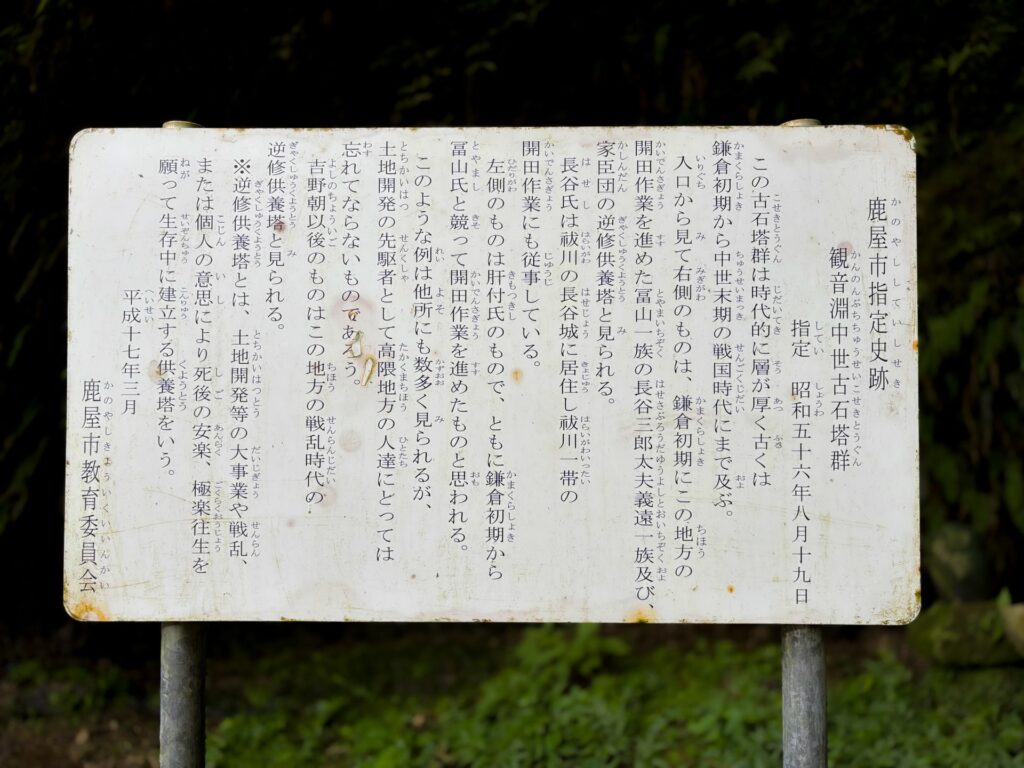 鹿屋市指定史跡
観音淵中世古石塔群
指定　昭和五十六年八月十九日
この古石塔群は時代的に層が厚く古くは
鎌倉初期から中世末期の戦国時代にまで及ぶ。
入口から見て右側のものは、鎌倉初期にこの地方の
開田作業を進めた冨山一族の長谷三郎太夫義遠一族及び、
家臣団の逆修供養塔と見られる。
長谷氏は祓川の長谷城に居住し祓川一帯の
開田作業にも従事している。
左側のものは肝付氏のもので、ともに鎌倉初期から
冨山氏と競って開田作業を進めたものと思われる。
このような例は他所にも数多く見られるが、
土地開発の先駆者として高隈地方の人達にとっては
忘れてならないものであろう。
吉野朝以後のものはこの地方の戦乱時代の
逆修供養塔と見られる。
※逆修供養塔とは、土地開発等の大事業や戦乱、
または個人の意思により死後の安楽、極楽往生を
願って生存中に建立する供養塔をいう。
平成十七年三月
鹿屋市教育委員会